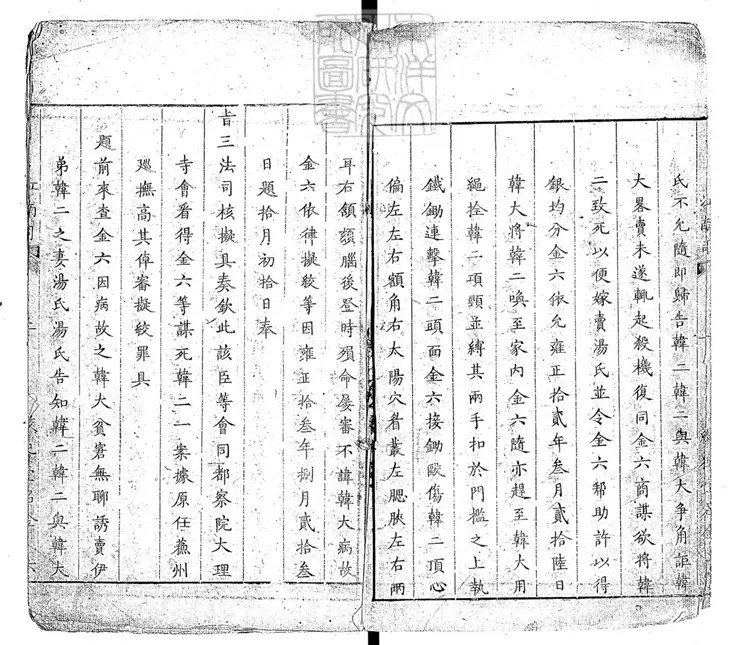 氏不允隨即歸告韓二韓二與韓大爭角詎韓
大畧賣未遂輒起殺機復同金六商謀欲將韓
二致死以便嫁賣湯氏並令金六帮助許以得
銀均分金六依允雍正拾貳年叁月貳拾陸日
韓大將韓二喚至家内金六隨亦趕至韓大用
繩拴韓二項頸並縛其兩手扣於門檻之上執
鐵鋤連擊韓二頭面金六接鋤毆傷韓二頂心
偏左左右額角右太陽穴眷叢左腮脥左右兩
耳右頷頦腦後登時殞命屡審不諱韓大病故
金六依律擬絞等因雍正拾叁年捌月貳拾叁
日題拾月初拾日奉
旨三法司核擬具奏欽此該臣等會同都察院大理
寺會看得金六等謀死韓二一案據原任蘓州
廵撫高其倬審擬絞罪具
題前來查金六因病故之韓大貧窘無聊誘賣伊
弟韓二之妻湯氏湯氏告知韓二韓二與韓大
東洋文化研究所圖書